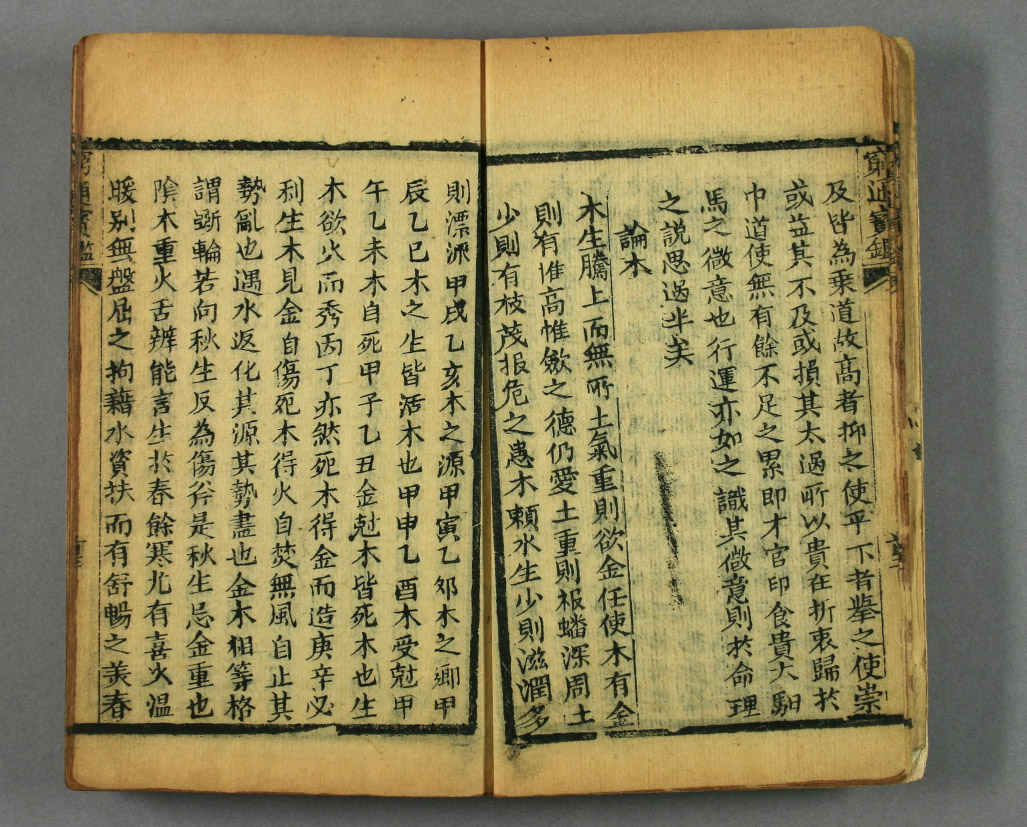 窮通寶鑑
及皆為乗道故高者抑之使平下者擧之使崇
或益其不及或損其太過所以貴在折衷歸於
中道使無有餘不足之累即才官印食貴大馹
馬之微意也行運亦如之識其微意則於命理
之說思過半矣
論木
木生騰上而無所止氣重則欲金任使木有金
則有惟高惟斂之德仍愛土重則根蟠深周土
少則有枝茂根危之患木頼水生少則滋潤多
則漂流甲戌乙亥木之源甲寅乙夘木之鄉甲
辰乙巳木之生皆活木也甲申乙酉木受尅甲
午乙未木自死甲子乙丑金尅木皆死木也生
木欲火而秀丙丁亦然死木得金而造庚辛必
利生木見金自傷死木得火自焚無風自止其
勢亂也遇水返化其源其勢盡也金木相等格
謂斲輪若向秋生反為傷斧是秋生忌金重也
隂木重火舌辨能言生於春餘寒尤有喜火温
暖别無盤屈之拘藉水資扶而有舒暢之美春
窮通寶鑑